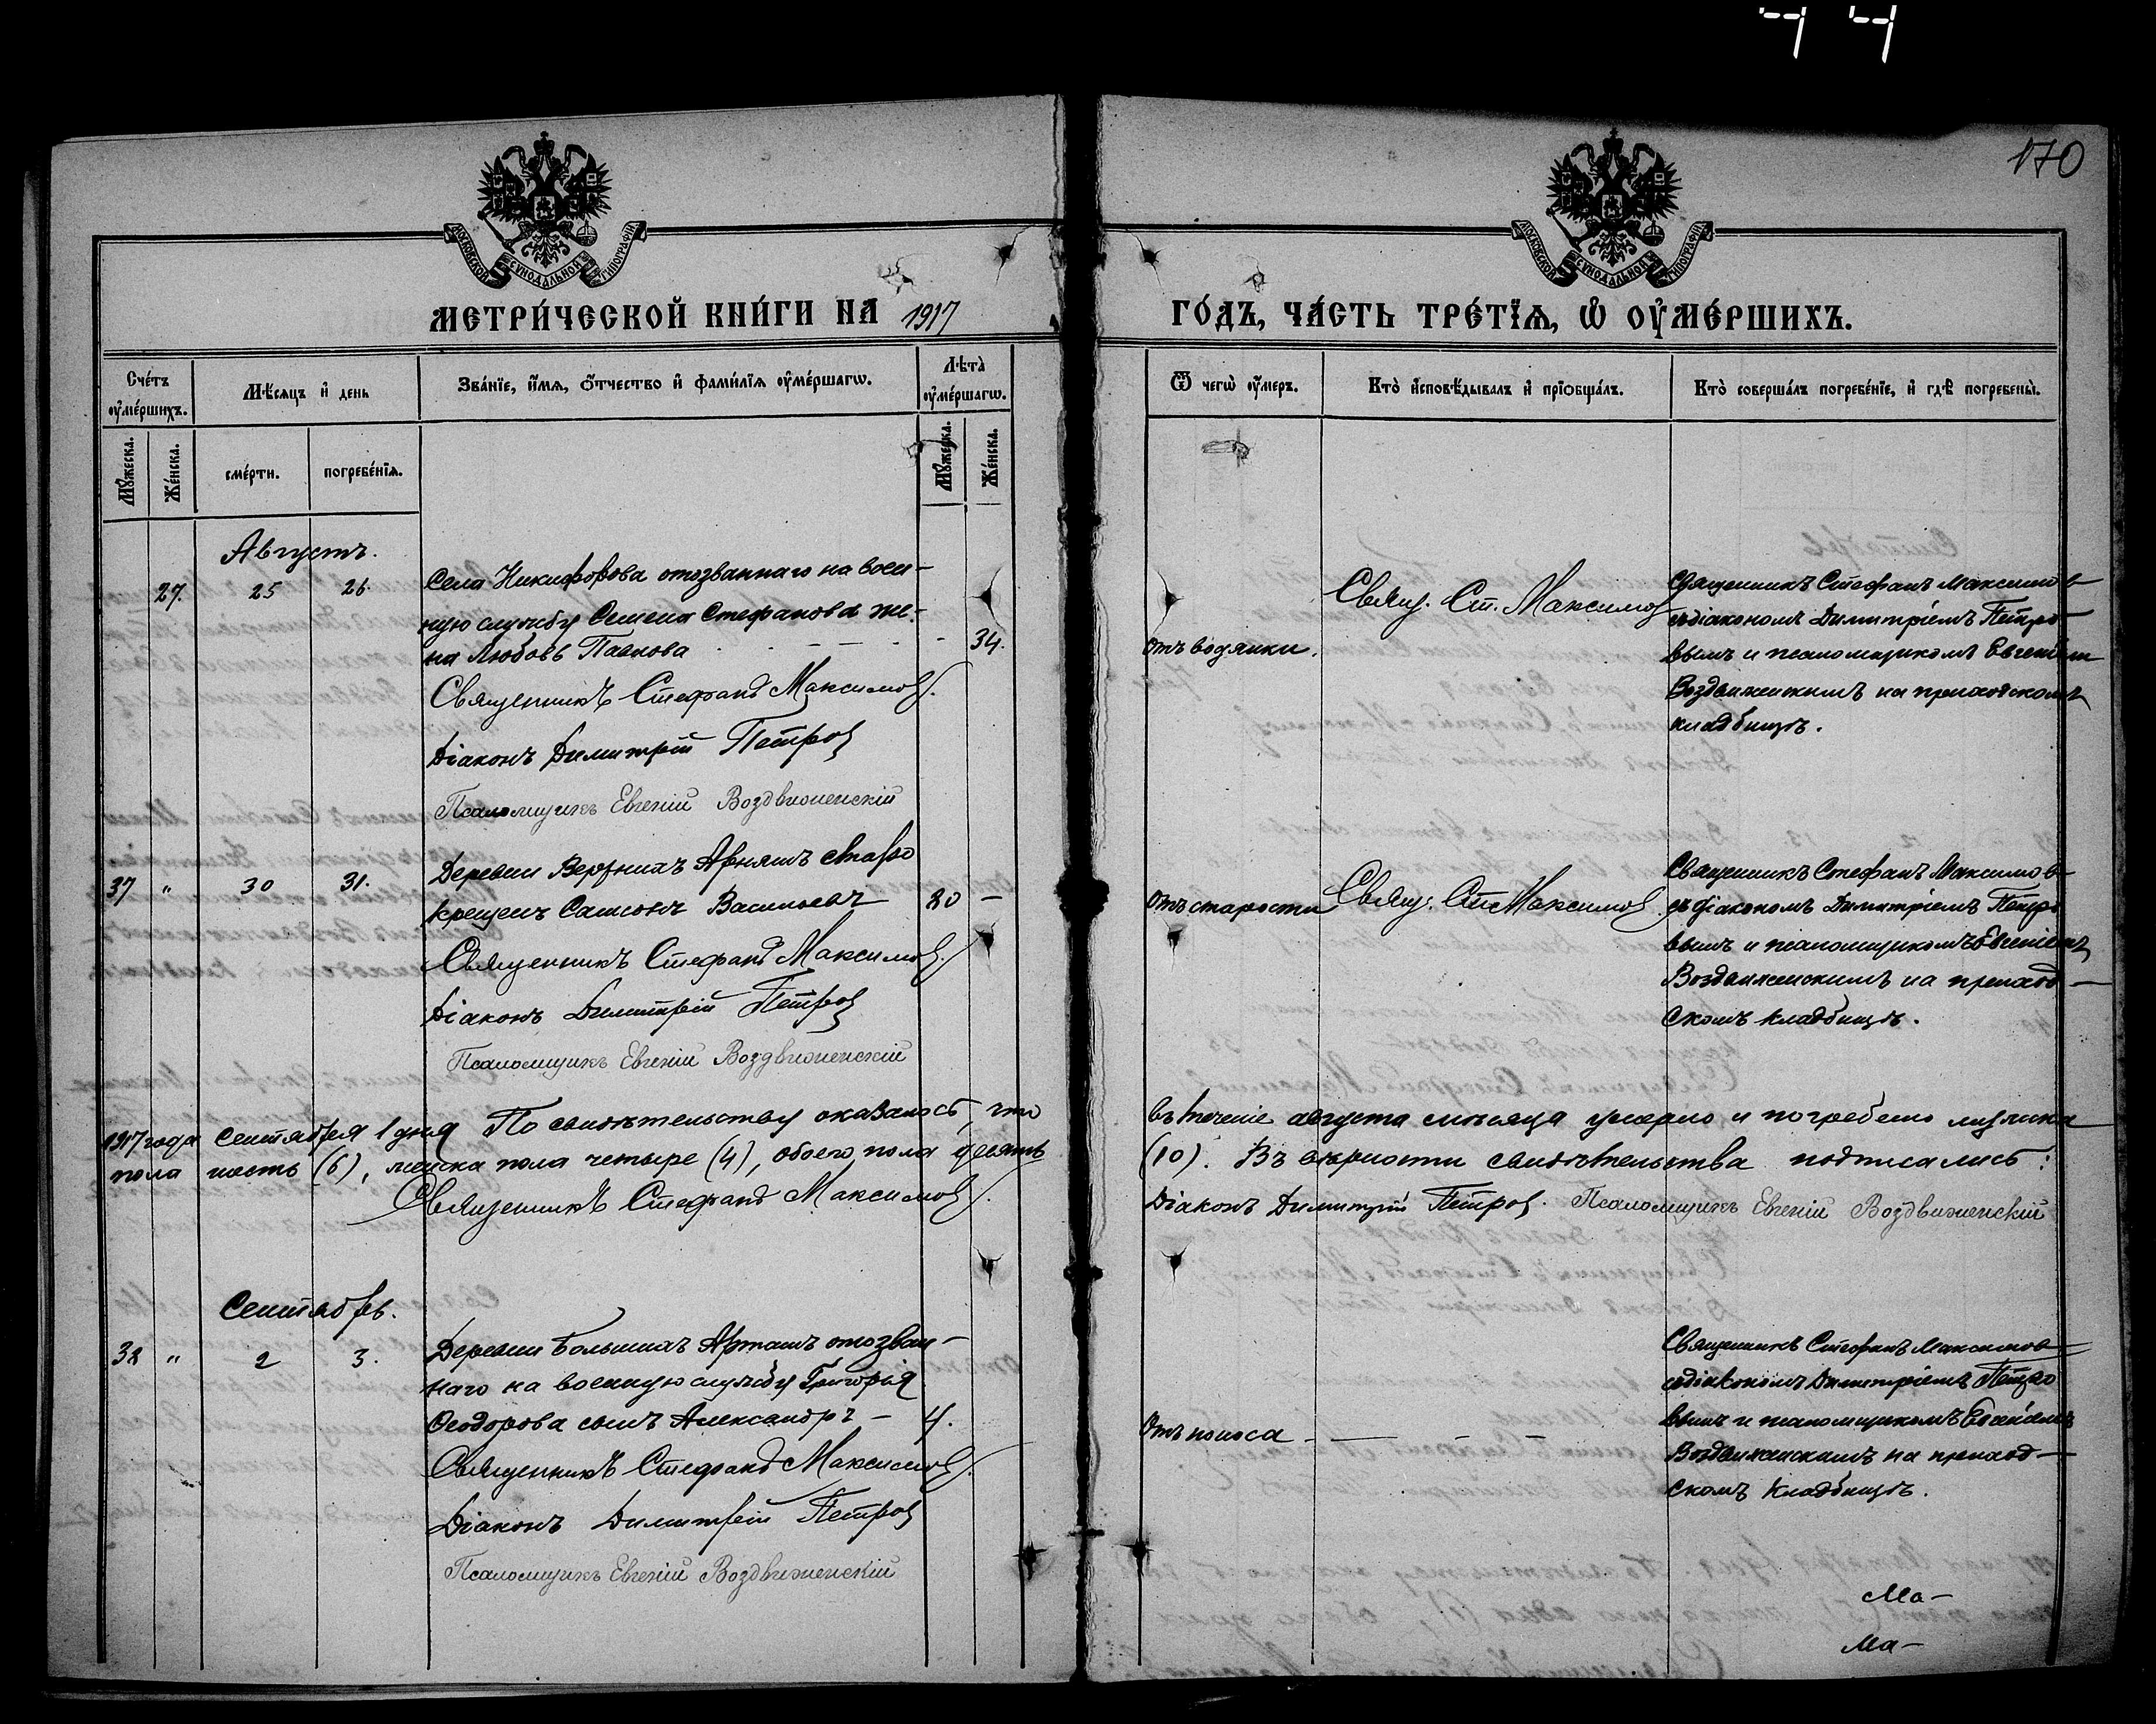 44
170
МОСКОВСКОЙ СѴНОДАЛЬНОЙ ТИПОГРАФІИ
МОСКОВСКОЙ СѴНОДАЛЬНОЙ ТИПОГРАФІИ
МЕТРИ́ЧЕСКОЙ КНИ́ГИ НА 1917 ГО́ДЪ, ЧА́СТЬ ТРЕ́ТЇѦ, Ѡ҆ ОУ҆МЕ́РШИХЪ.
Сче́тъ оу҆ме́ршихъ.
Мѣ́сяцъ и҆ день
Зва́нїе, и҆́мѧ, ѻ҆́тчество и҆ фами́лїѧ оу҆ме́ршагѡ.
Лѣта̀ оу҆ме́ршагѡ.
Ѿ чегѡ̀ оу҆́меръ.
Кто̀ и҆сповѣ́дывалъ и҆ прїѻбща́лъ.
Кто̀ соверша́лъ погребе́нїе, и҆ гдѣ̀ погребены̀.
Мꙋ́жеска.
Же́нска.
сме́рти.
погребе́нїѧ.
Мꙋ́жеска.
Же́нска.
Августъ.
27. 25 26.
Села Никифорова отозваннаго на воен-
ную службу Семена Стефанова же-
на Любовь Павлова - 34.
Священникъ Стефанъ Максимов.
Діаконъ Димитрій Петров
Псаломщикъ Евгеній Воздвиженскій
Отъ водянки.
Свящ. Ст. Максимов
Священникъ Стефанъ Максимов
съ діакономъ Димитріемъ Петро-
вымъ и псаломщикомъ Евгеніем
Воздвиженскимъ на приходскомъ
кладбищѣ.
37 " 30 31.
Деревни Верхнихъ старо
крещенъ Самсонъ Васильевъ 80 -
Священникъ Стефанъ Максимов.
Діаконъ Димитрій Петров
Псаломщикъ Евгеній Воздвиженскій
Отъ старости
Свящ. Ст. Максимов
Священникъ Стефанъ Максимов
съ діакономъ Димитріемъ Петро
вымъ и псаломщикомъ Евгеніемъ
Воздвиженскимъ на приход-
скомъ кладбищѣ.
1917 года Сентября 1 дня По свидѣтельству оказалось, что въ теченіе августа мѣсяца умерло и погребено мужска
пола шесть (6), женска пола четыре (4), обоего пола десять (10). Въ вѣрности свидѣтельства подписались:
Священникъ Стефанъ Максимов. Діаконъ Димитрій Петров. Псаломщикъ Евгеній Воздвиженскій
Сентябрь.
38 " 2 3.
Деревни Большихъ отозван-
наго на военную службу Григорія
Ѳеодорова сынъ Александръ - 4.
Священникъ Стефанъ Максимов.
Діаконъ Димитрій Петров
Псаломщикъ Евгеній Воздвиженскій
Отъ поноса - - - -
Священникъ Стефанъ Максимов
съ діакономъ Димитріемъ Петро
вымъ и псаломщикомъ Евгеніемъ
Воздвиженскимъ на приход-
скомъ кладбищѣ.
Ма-
Ма-